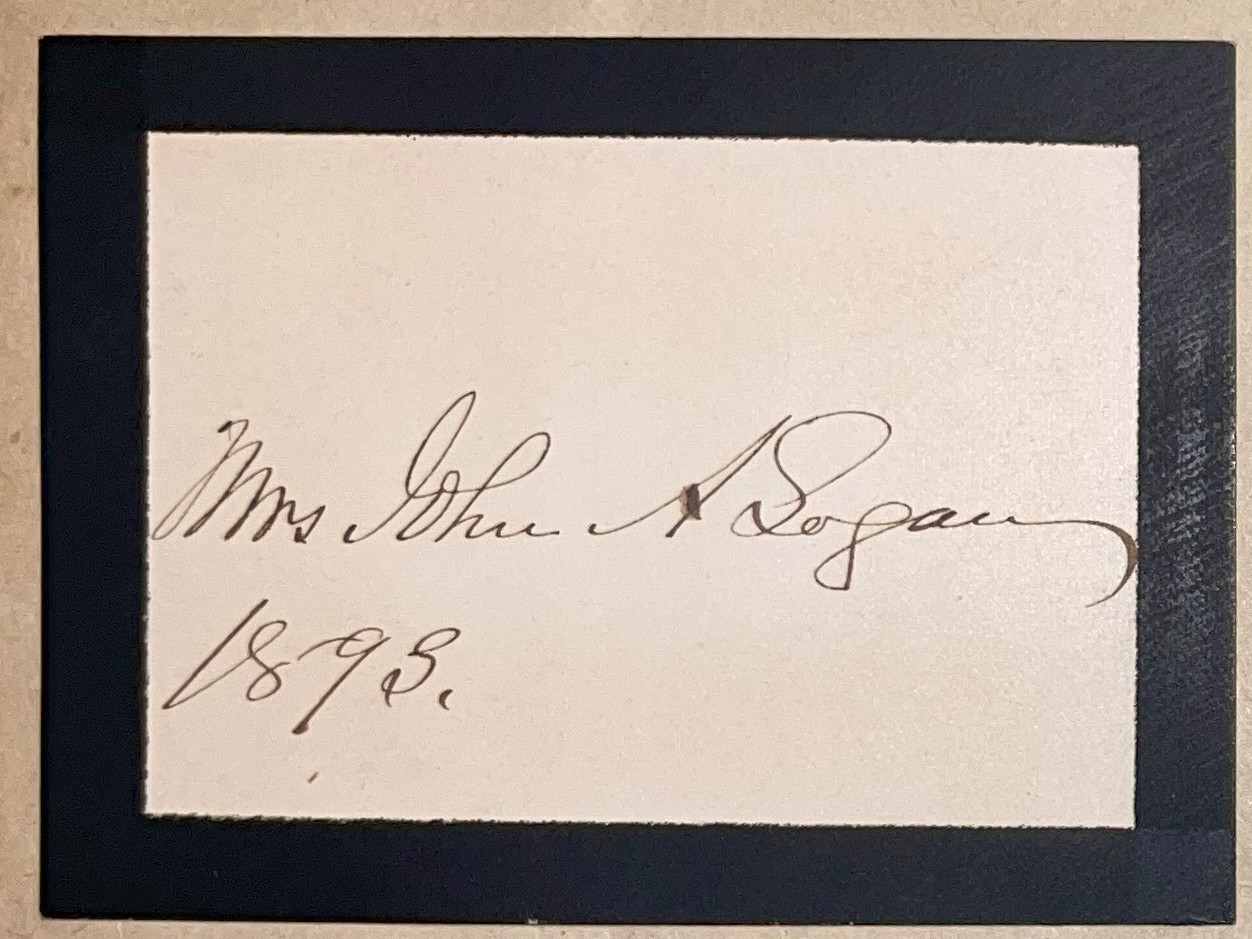 Mrs John A Logan
1893.